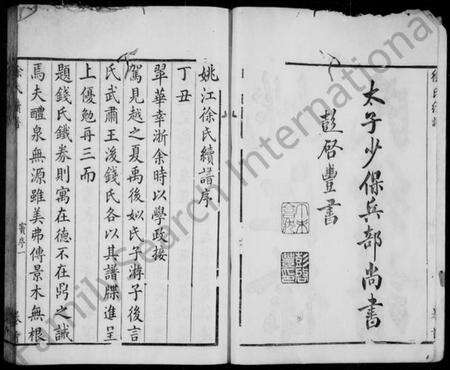 太子少保兵部尚書
彭啓豐書
姚江徐氏續譜序
丁丑
翠華幸浙余時以學政接
駕見越之夏禹後姒氏子游子後言
氏武肅王後錢氏各以其譜牒進呈
上優勉再三而
題錢氏鐵券則寓在德不在券之誡
焉夫醴泉無源雖美弗傳景木無根
FamilySearch International